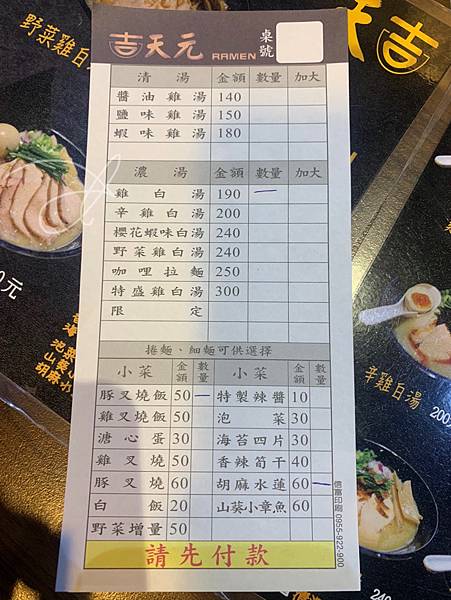 吉天元 RAMEN 桌號
清湯 金額 數量 加大
醬油雞湯 140
鹽味雞湯 150
蝦味雞湯 180
濃湯 金額 數量 加大
雞白湯 190 一
辛雞白湯 200
櫻花蝦味白湯 240
野菜雞白湯 240
咖哩拉麵 250
特盛雞白湯 300
限定
捲麵、細麵可供選擇
小菜 金額 數量 小菜 金額 數量
豚叉燒飯 50 一 特製辣醬 10
雞叉燒飯 50 泡菜 30
溏心蛋 30 海苔四片 30
雞叉燒 50 香辣筍干 40
豚叉燒 60 胡麻水蓮 60 一
白飯 20 山葵小章魚 60
野菜增量 50
請先付款
信富印刷 0955-922-900
野菜雞白湯
天吉
辛雞白湯
200
0元
240